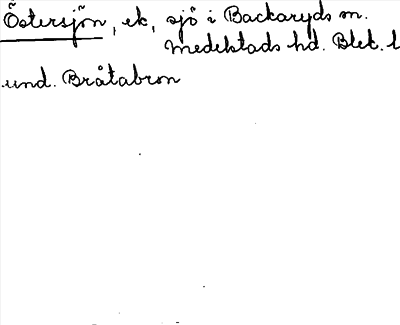 Östersjön, ek, sjö i Backaryds sn.
Medelstads hd. Blek. l
und. Bråtabron